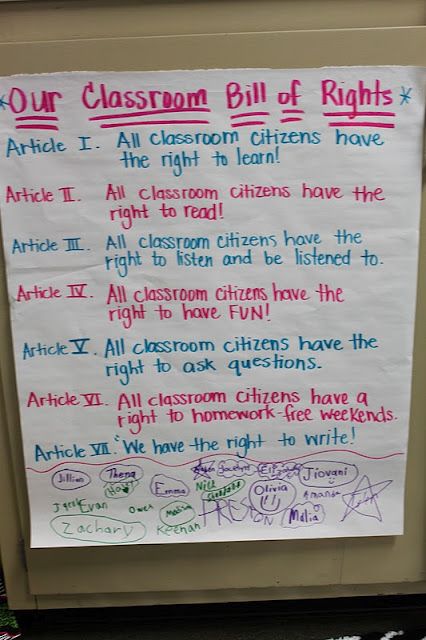 *Our Classroom Bill of Rights*
Article I. All classroom citizens have
the right to learn!
Article II. All classroom citizens have the
right to read!
Article III. All classroom citizens have the
right to listen and be listened to.
Article IV. All classroom citizens have the
right to have FUN!
Article V. All classroom citizens have the
right to ask questions.
Article VI. All classroom citizens have a
right to homework-free weekends.
Article VII. "We have the right to write!
Jillian Thena Jiovani
Emma Nick Olivia Amanda
Jacob Evan Owen PRESTON Malia
Zachary Keenan